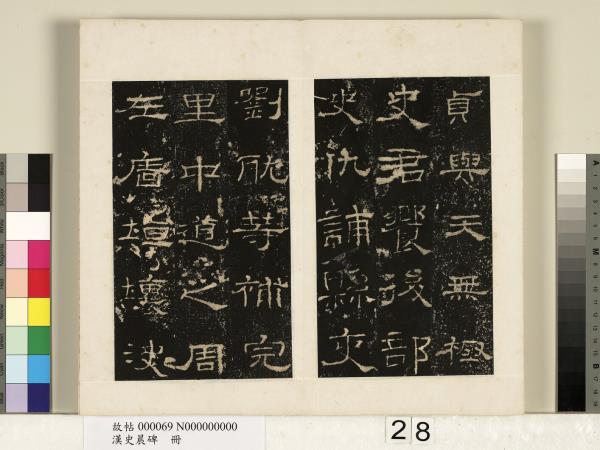 貞與天無極
史君饗後部
史仇誧縣吏
劉耽等補完
里中道之周
左廧垣壞決
故帖 000069 N000000000
漢史晨碑 冊
28